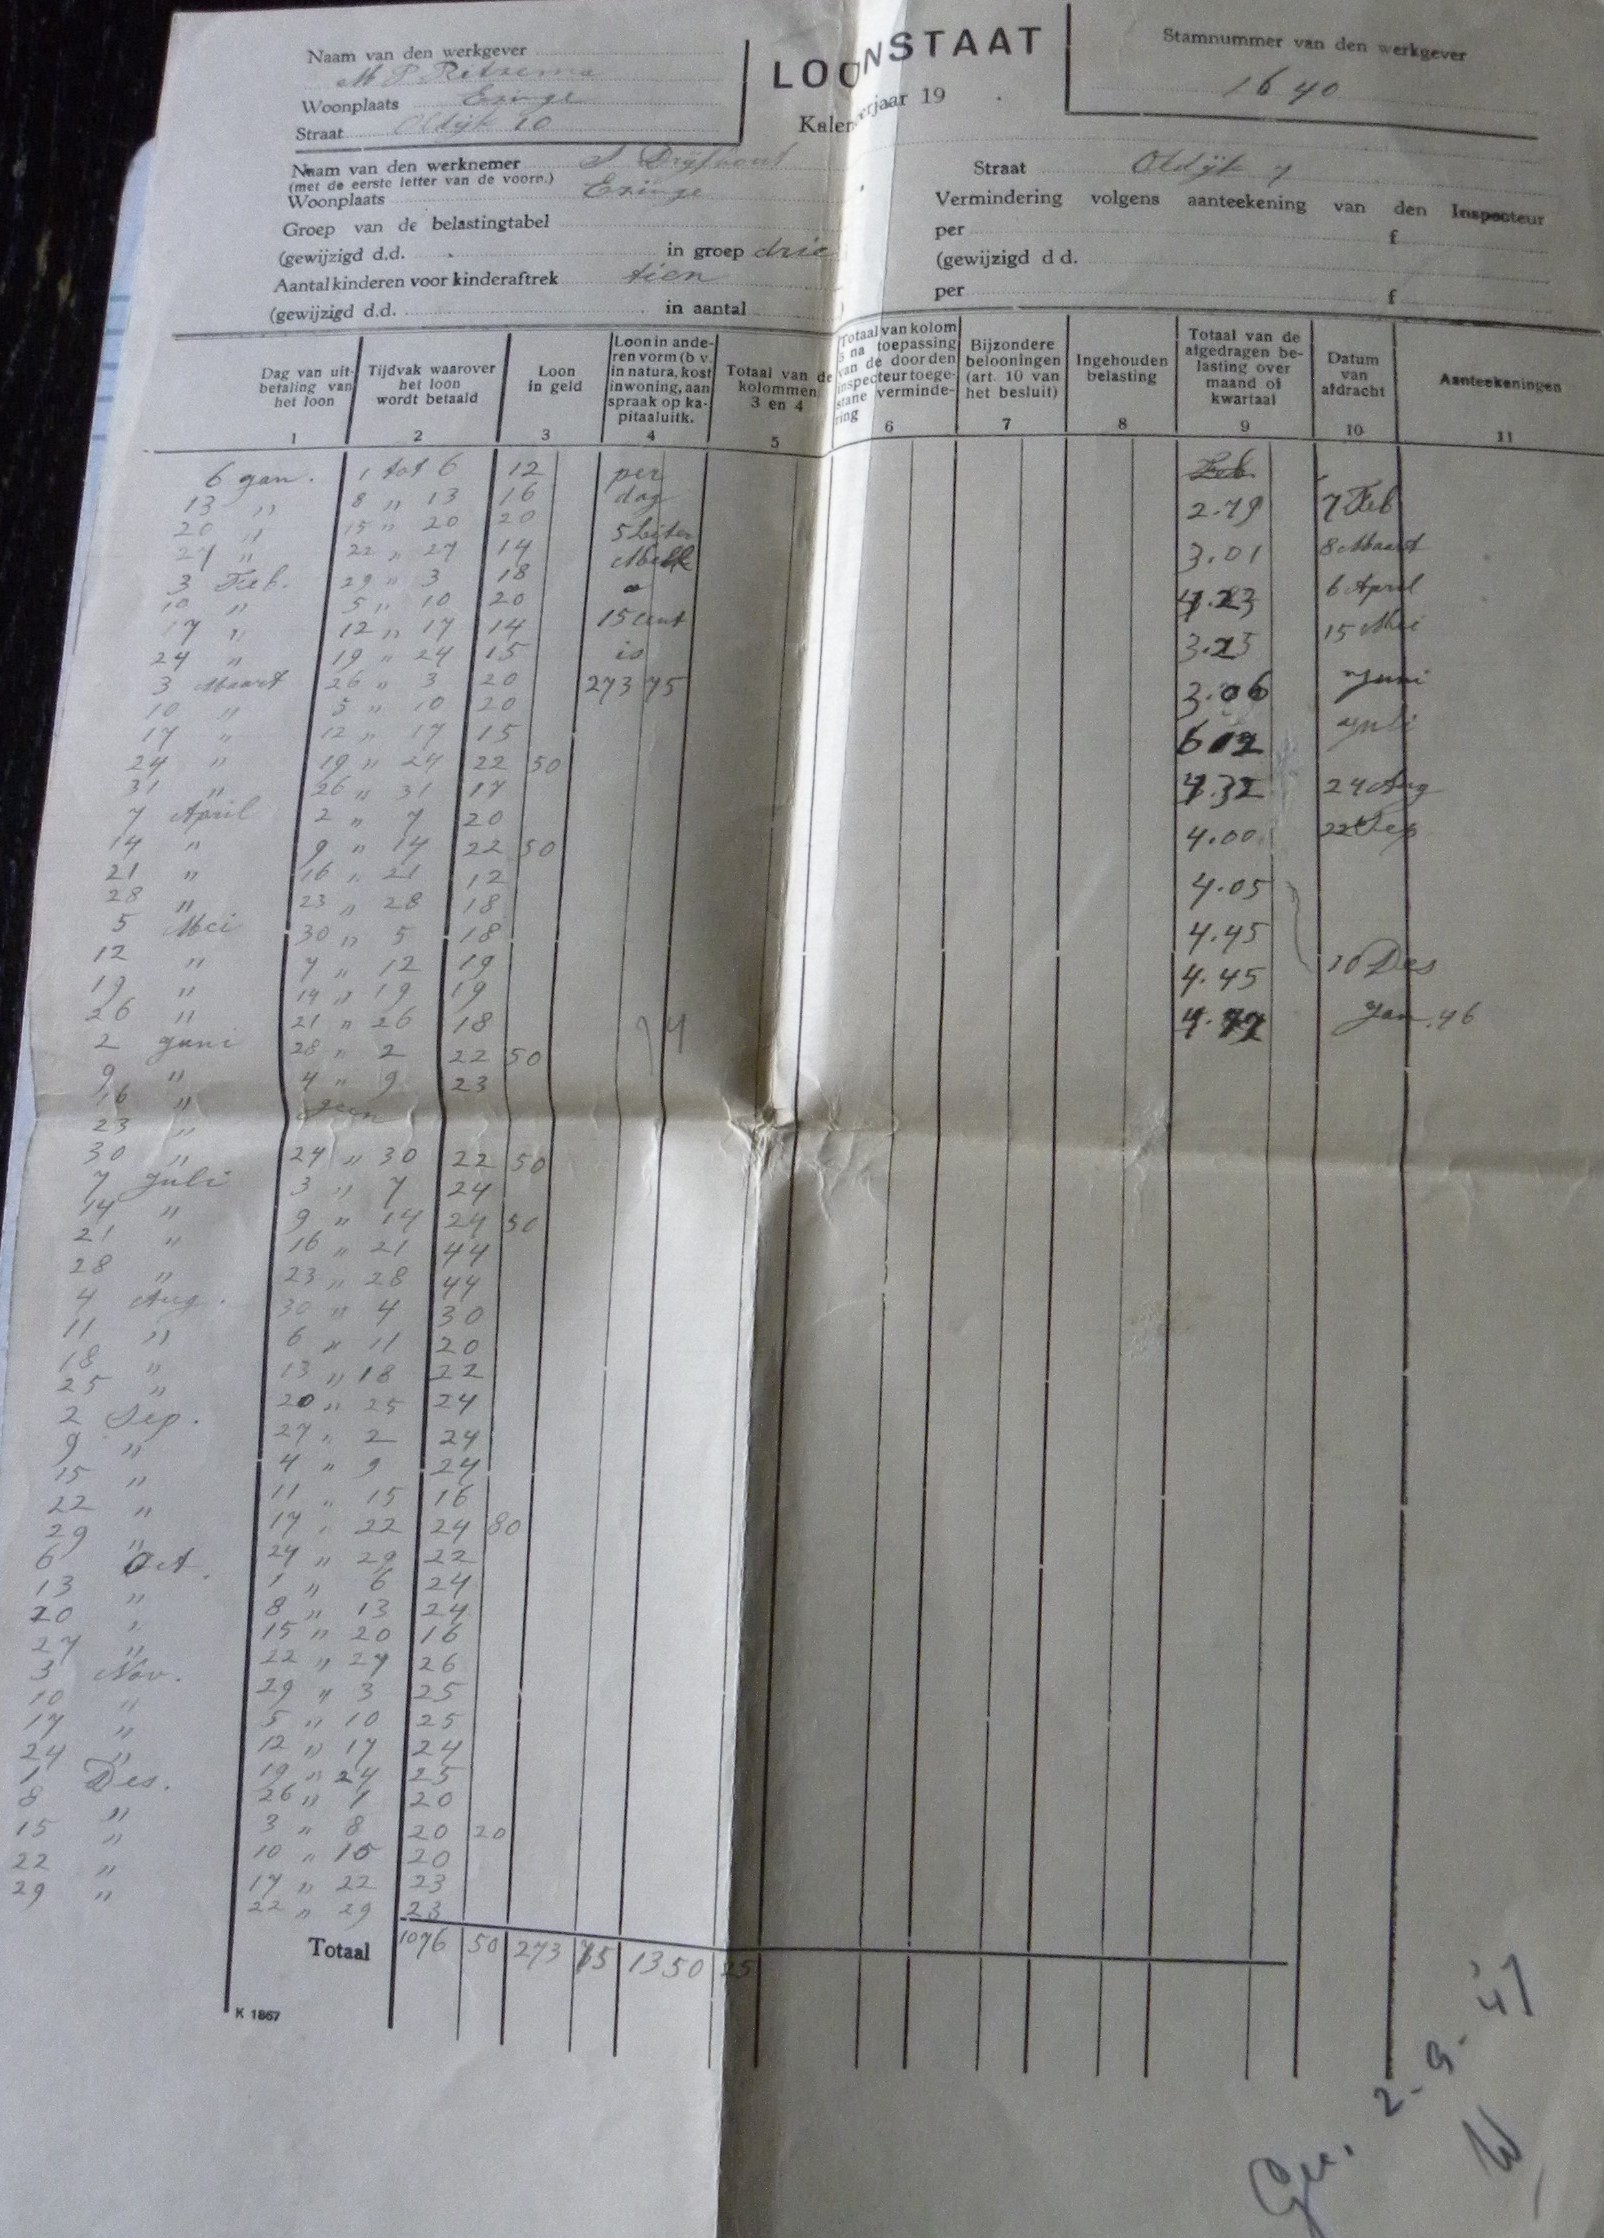 Naam van den werkgever
M P Ritsema
Woonplaats Ezinge
Straat Oldijk 10
LOONSTAAT
Kalenderjaar 19
Stamnummer van den werkgever
1640
Naam van den werknemer
(met de eerste letter van de voorn.)
Woonplaats Ezinge
Groep van de belastingtabel
(gewijzigd d.d. in groep drie
Aantal kinderen voor kinderaftrek tien
(gewijzigd d.d. in aantal )
Straat Oldijk 7
Vermindering volgens aanteekening van den Inspecteur
per f
(gewijzigd d d.
per f
Dag van uitbetaling van het loon 1
Tijdvak waarover het loon wordt betaald 2
Loon in geld 3
Loon in anderen vorm (b v. in natura, kost inwoning, aanspraak op kapitaaluitk. 4
Totaal van de kolommen 3 en 4 5
Totaal van kolom 5 na toepassing van de door den inspecteur toegestane vermindering 6
Bijzondere belooningen (art. 10 van het besluit) 7
Ingehouden belasting 8
Totaal van de afgedragen belasting over maand of kwartaal 9
Datum van afdracht 10
Aanteekeningen 11
6 jan. 1 tot 6 12 per Feb
13 " 8 " 13 16 dag 2.79 7 Feb
20 " 15 " 20 20 5 Liter
27 " 22 " 27 14 Melk 3.01 8 Maart
3 Feb. 29 " 3 18 a
10 " 5 " 10 20 4.23 6 April
17 " 12 " 17 14 15 cent
24 " 19 " 24 15 is 3.25 15 Mei
3 Maart 26 " 3 20 273 75
10 " 5 " 10 20 3.06 Juni
17 " 12 " 17 15
24 " 19 " 24 22 50 6 Juli
31 " 26 " 31 17
7 April 2 " 7 20 4.32 24 Aug
14 " 9 " 14 22 50
21 " 16 " 21 12 4.00 22 Sep
28 " 23 " 28 18
5 Mei 30 " 5 18 4.05
12 " 7 " 12 19
19 " 14 " 19 19 4.45
26 " 21 " 26 18
2 Juni 28 " 2 22 50 4.45 10 Des
9 " 4 " 9 23
16 " geen Jan. 46
23 "
30 " 24 " 30 22 50
7 Juli 3 " 7 24
14 " 9 " 14 24 50
21 " 16 " 21 44
28 " 23 " 28 44
4 Aug. 30 " 4 30
11 " 6 " 11 20
18 " 13 " 18 22
25 " 20 " 25 24
2 Sep. 27 " 2 24
9 " 4 " 9 24
15 " 11 " 15 16
22 " 17 " 22 24 80
29 " 24 " 29 22
6 Oct. 1 " 6 24
13 " 8 " 13 24
20 " 15 " 20 16
27 " 22 " 27 26
3 Nov. 29 " 3 25
10 " 5 " 10 25
17 " 12 " 17 24
24 " 19 " 24 25
1 Des. 26 " 1 20
8 " 3 " 8 20 20
15 " 10 " 15 20
22 " 17 " 22 23
29 " 22 " 29 23
Totaal 1076 50 273 75 1350 25
K 1867
2-9-'47